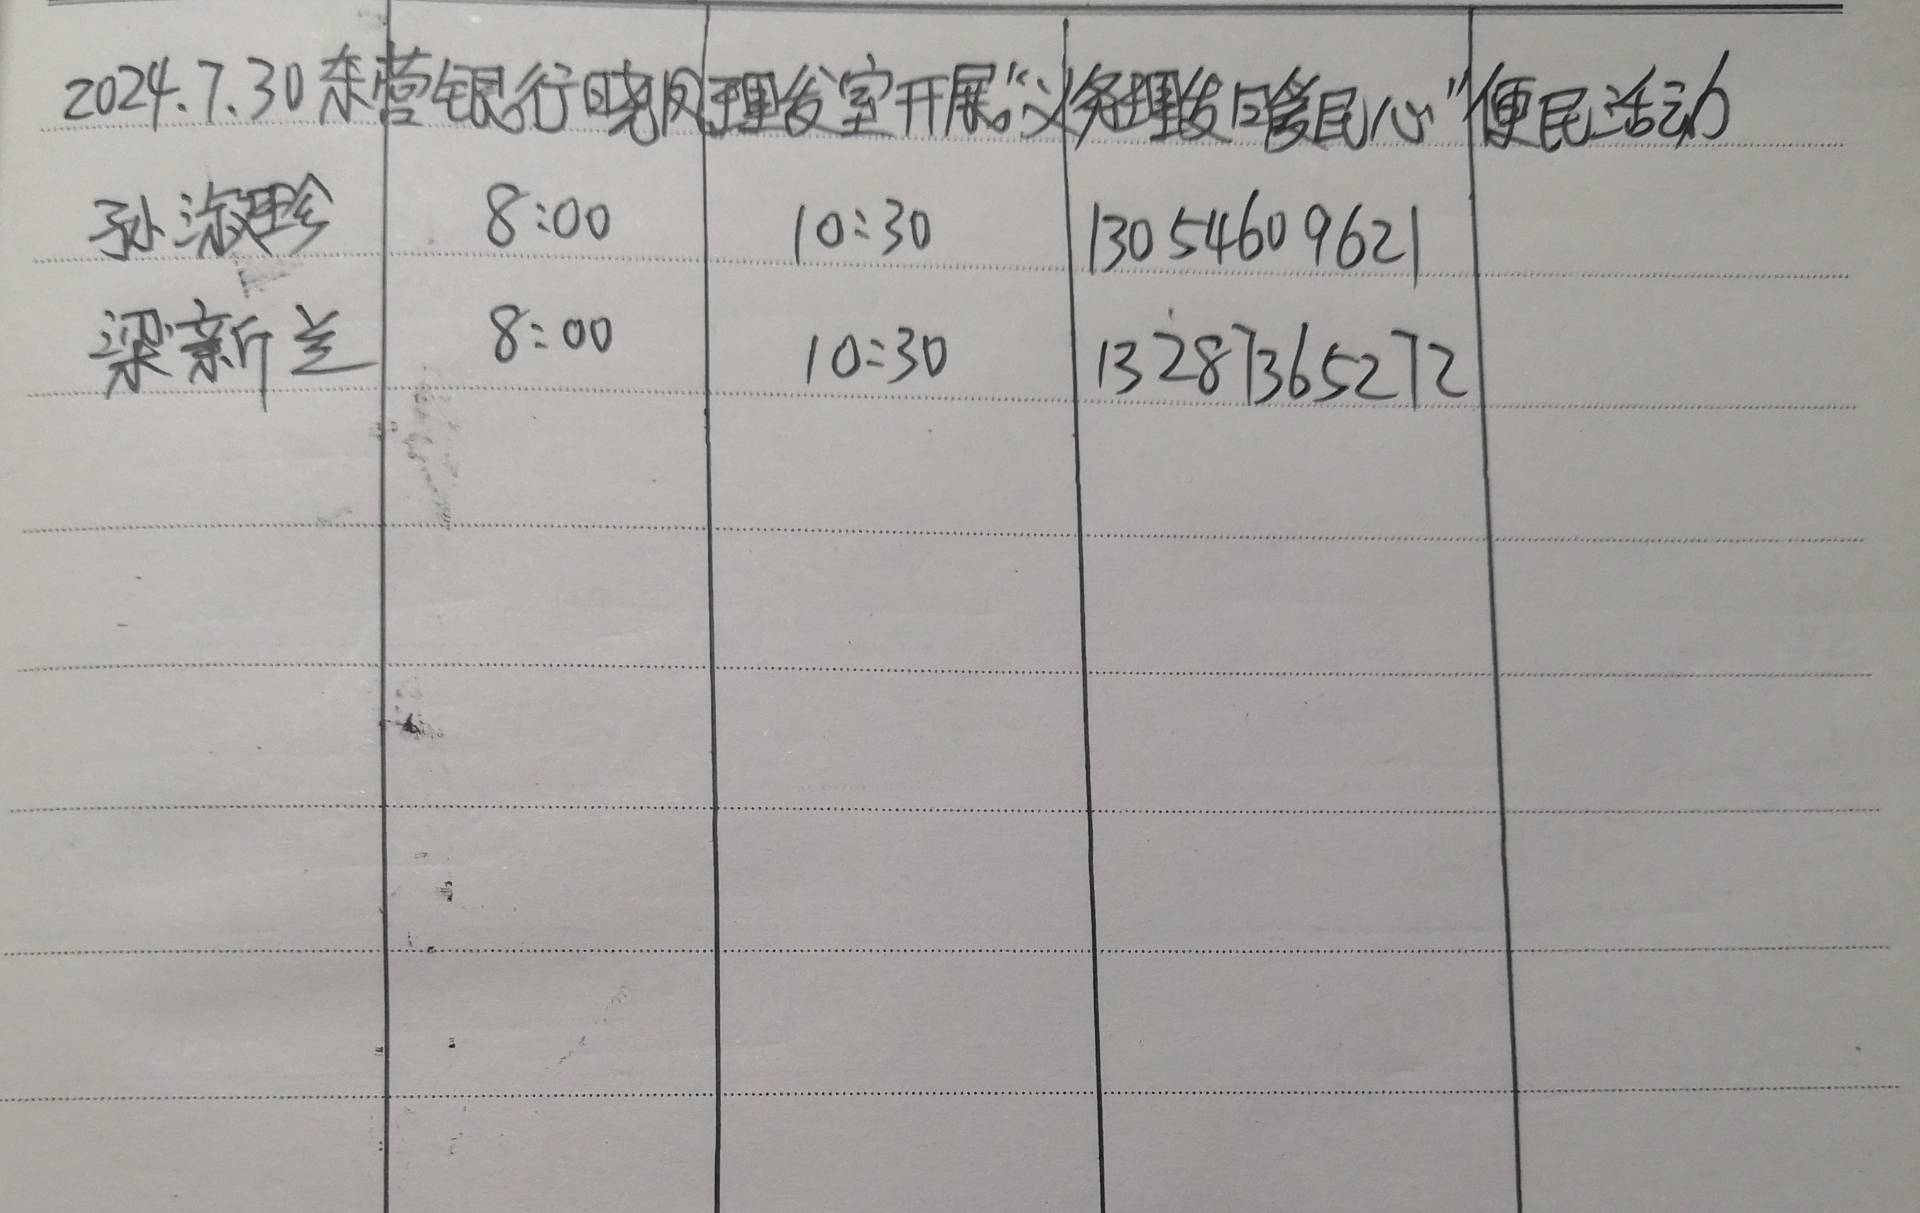 2024.7.30东营银行晓风理发室开展“义务理发暖民心”便民活动
孙淑珍 8:00 10:30 13054609621
梁新兰 8:00 10:30 13287365272